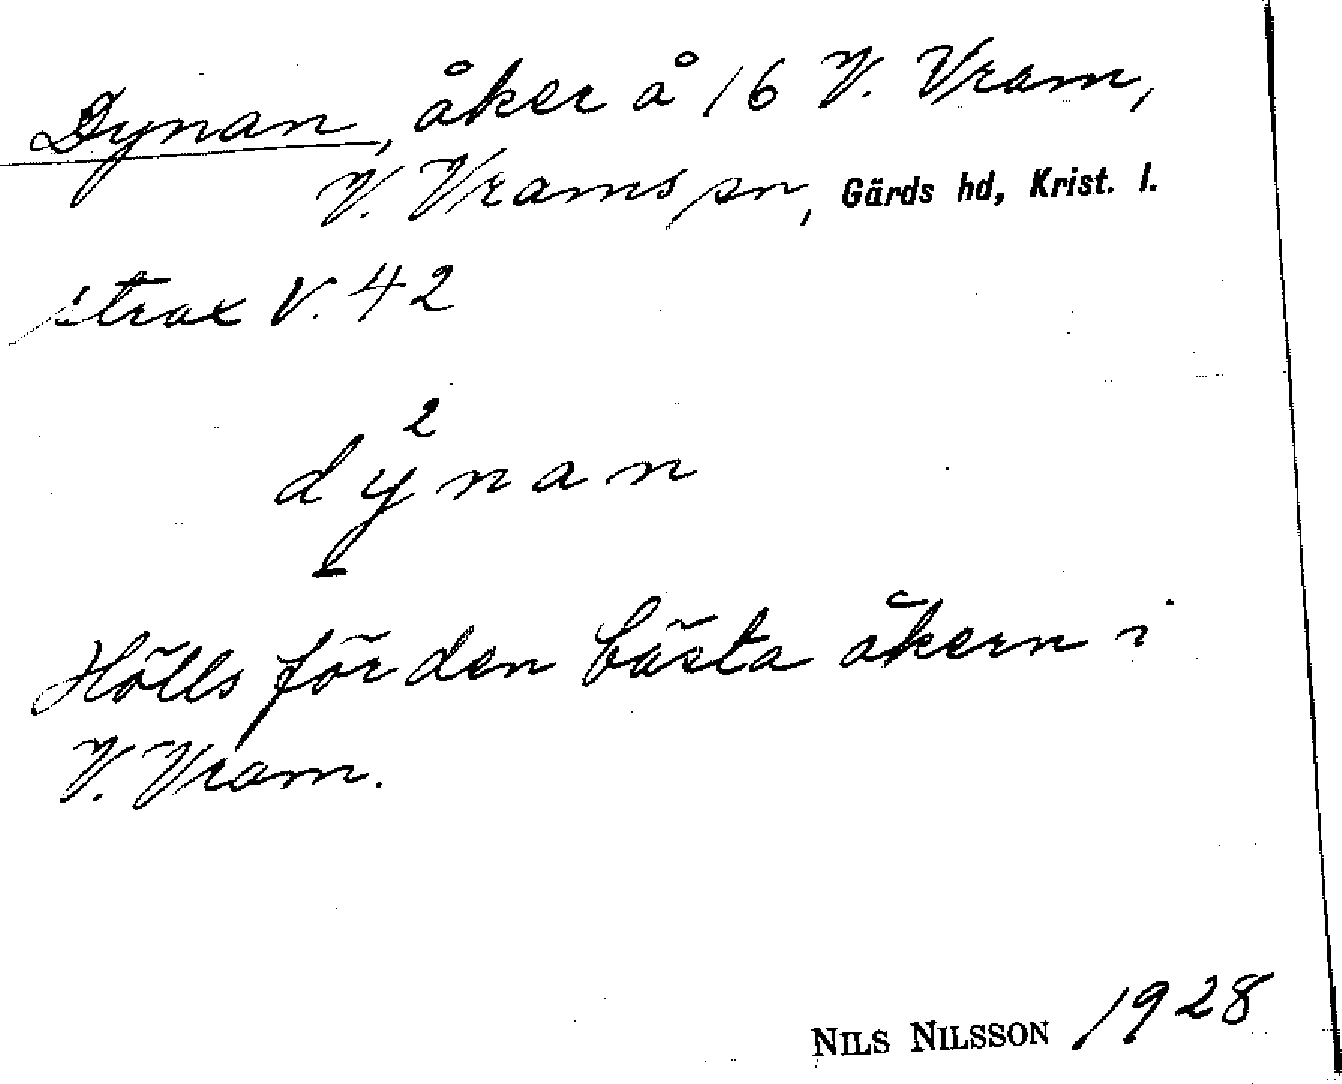 Dynan, åker å 16 V. Vram,
V. Vrams sn, Gärds hd, Krist. l.
strax V. 42
dy²nan
Hölls för den bästa åkern i
V. Vram.
NILS NILSSON 1928